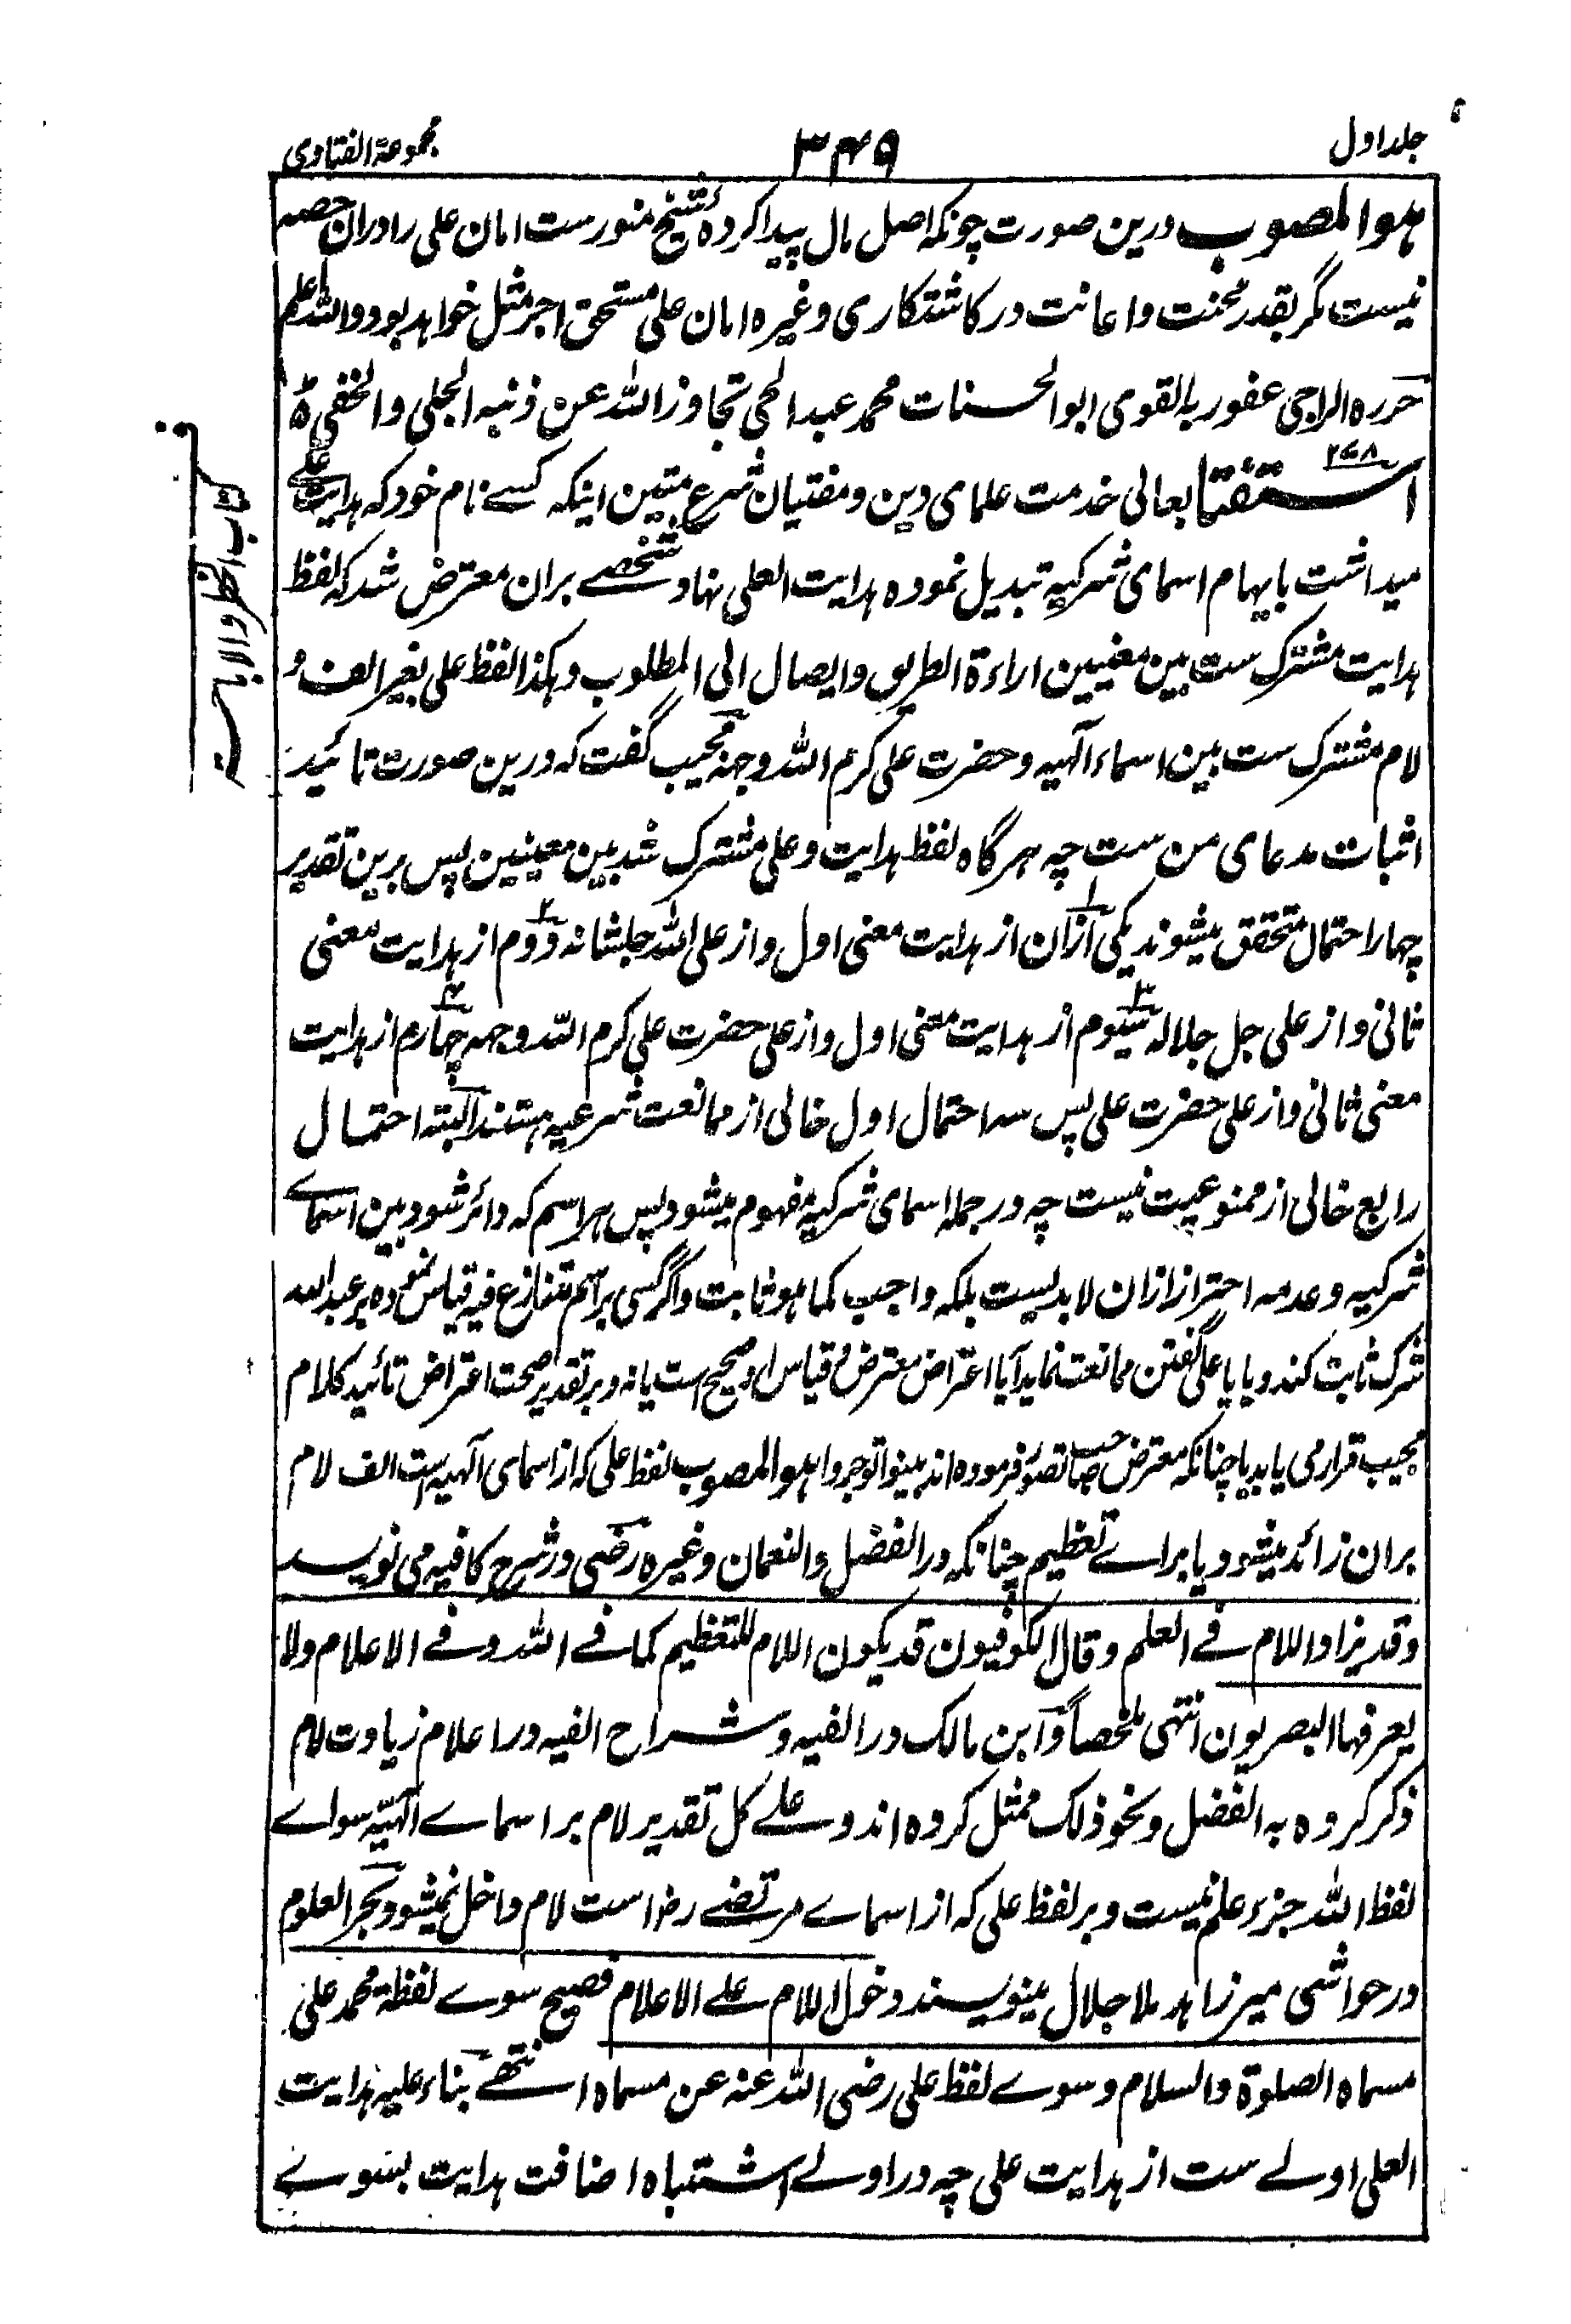 جلد اول
۳۴۹
مجموعة الفتاوی
هو المصوب درین صورت چونکه اصل مال پیدا کردهٔ شیخ منورست امان علی را دران حصه
نیست مگر بقدر محنت و اعانت در کاشتکاری وغیره امان علی مستحق اجر مثل خواهد بود والله اعلم
حرره الراجی عفو ربه القوی ابو الحسنات محمد عبد الحی تجاوز الله عن ذنبه الجلی والخفی
۲۷۸
استفتا بعالی خدمت علمای دین و مفتیان شرع متین اینکه کسے نام خود که هدایت علی
میداشت بایهام اسمای شرکیه تبدیل نموده هدایت العلی نهاد شخصے بران معترض شد که لفظ
هدایت مشترک ست بین معنیین اراءة الطریق وایصال الی المطلوب وهکذا لفظ علی بغیر الف و
لام مشترک ست بین اسماء الٓهیه و حضرت علی کرم الله وجهه مجیب گفت که درین صورت تائید
اثبات مدعای من ست چه هرگاه لفظ هدایت و علی مشترک شد بین معنیین پس برین تقدیر
چهار احتمال متحقق میشوند یکی ازان از هدایت معنی اول و از علی الله جلشانه دوم از هدایت معنی
ثانی و از علی جل جلاله سیوم از هدایت معنی اول و از علی حضرت علی کرم الله وجهه چهارم از هدایت
معنی ثانی و از علی حضرت علی پس سه احتمال اول خالی از ممانعت شرعیه هستند البته احتمال
رابع خالی از ممنوعیت نیست چه در جمله اسمای شرکیه مفهوم میشود پس هر اسم که دائر شود بین اسماے
شرکیه و عدمه احتراز ازان لابدیست بلکه واجب کما هو ثابت و اگر کسی بر اسم متنازع فیه قیاس نموده بر عبد الله
شرک ثابت کند و یا یا علی گفتن ممانعت نماید آیا اعتراض معترض و قیاس او صحیح است یا نه و بر تقدیر صحت اعتراض تائید کلام
مجیب قرار می یابد یا چنانکه معترض صاحب تصور فرموده اند بینوا توجروا هو المصوب لفظ علی که از اسمای الٓهیه است الف لام
بران زائد میشود و یا براے تعظیم چنانکه در الفضل والنعمان وغیره رضی در شرح کافیه می نویسد
وقد یزاد اللام فے العلم وقال الکوفیون قد یکون اللام للتعظیم کما فے الله وفے الاعلام ولا
یعرفها البصریون انتهی ملخصاً و ابن مالک در الفیه و شراح الفیه در اعلام زیادت لام
ذکر کرده به الفضل ونحو ذلک ممثل کرده اند و علے کل تقدیر لام بر اسماے الٓهیه سواے
لفظ الله جزء علم نیست و بر لفظ علی که از اسماے مرتضے رض است لام داخل نمیشود بحر العلوم
در حواشی میر زاهد ملا جلال مینویسند دخول اللام علے الاعلام فصیح سوے لفظة محمد علی
مسماه الصلوة والسلام وسوے لفظ علی رضی الله عنه عن مسماه انتهے بناء علیه هدایت
العلی اولے ست از هدایت علی چه در اولے اشتباه اضافت هدایت بسوے
باب الحظر والاباحة